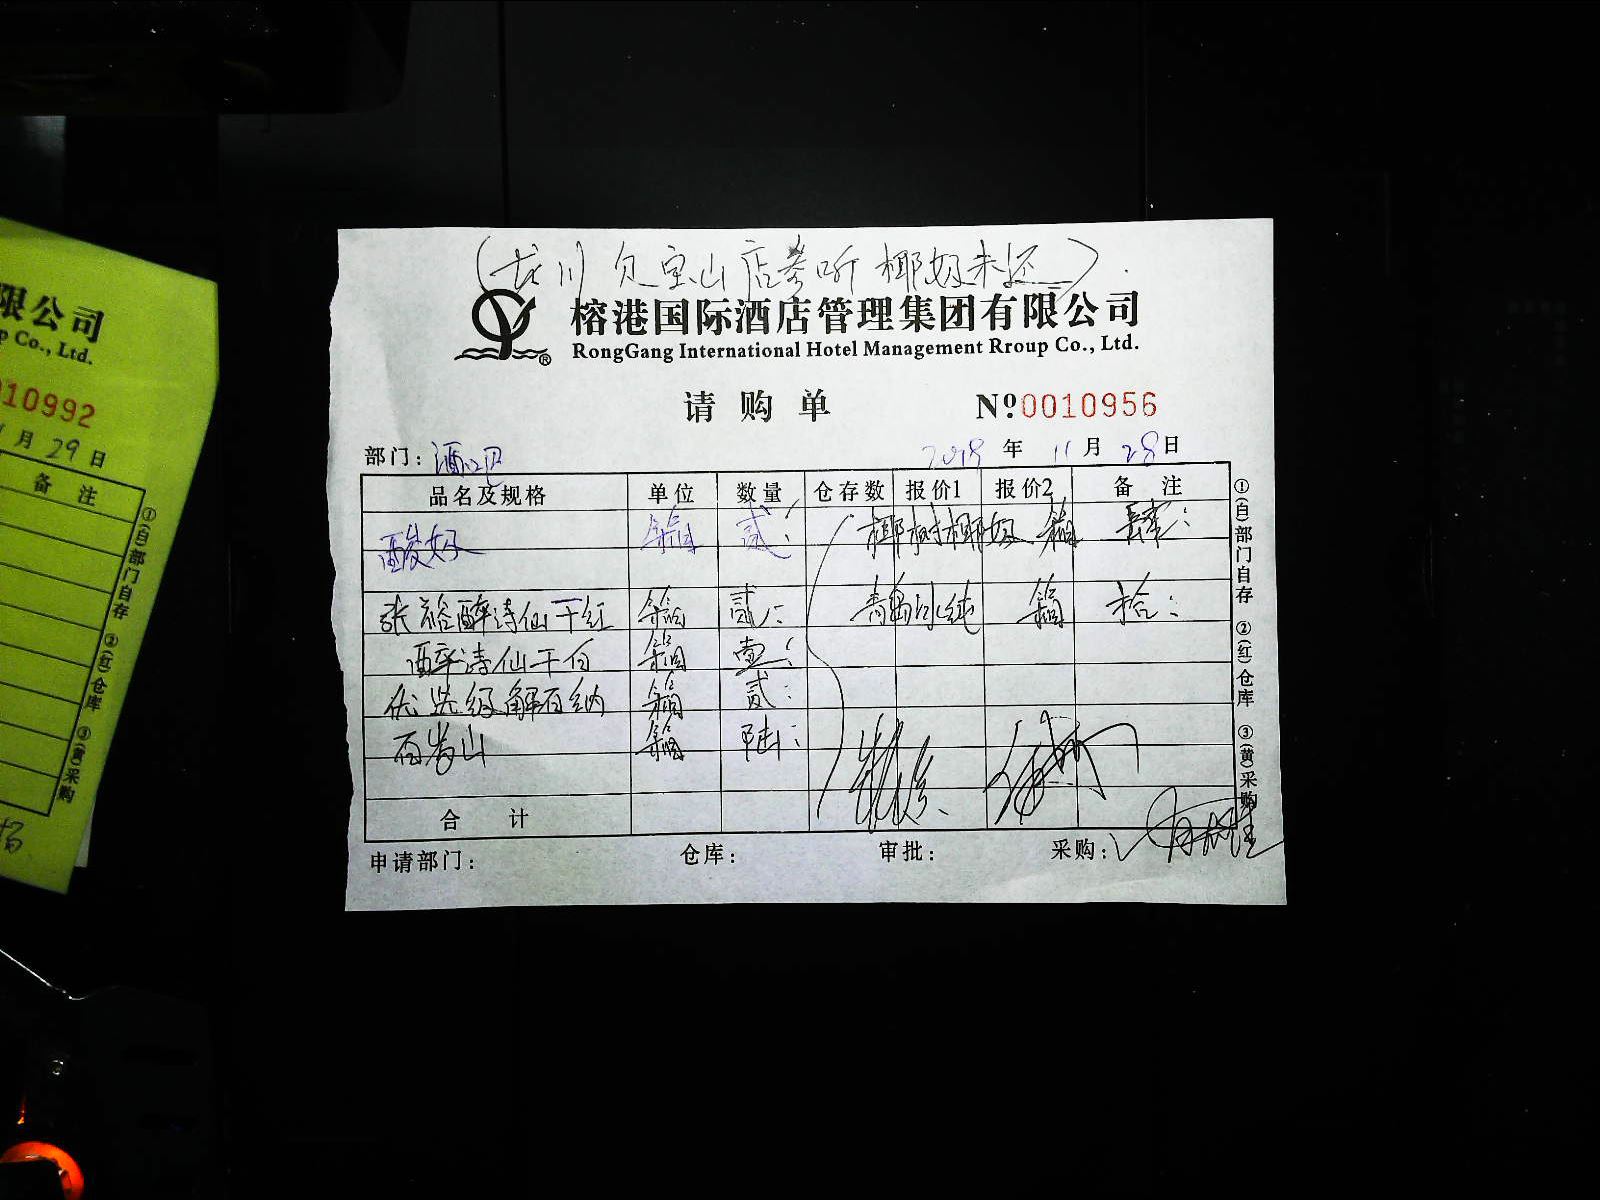 (龙川欠宝山店叁听椰奶未还).
榕港国际酒店管理集团有限公司
RongGang International Hotel Management Rroup Co., Ltd.
请购单 Nº0010956
部门: 酒吧 2018 年 11 月 28 日
品名及规格 单位 数量 仓存数 报价1 报价2 备注
酸奶 箱 贰: 椰树椰奶 箱 肆:
张裕醉诗仙干红 箱 贰: 青岛冰纯 箱 拾:
醉诗仙干白 箱 壹:
优选级解百纳 箱 贰:
百岁山 箱 陆:
合计
申请部门: 仓库: 审批: 采购:
①(白)部门自存 ②(红)仓库 ③(黄)采购
限公司
p Co., Ltd.
010992
月 29 日
备注
①(白)部门自存 ②(红)仓库 ③(黄)采购